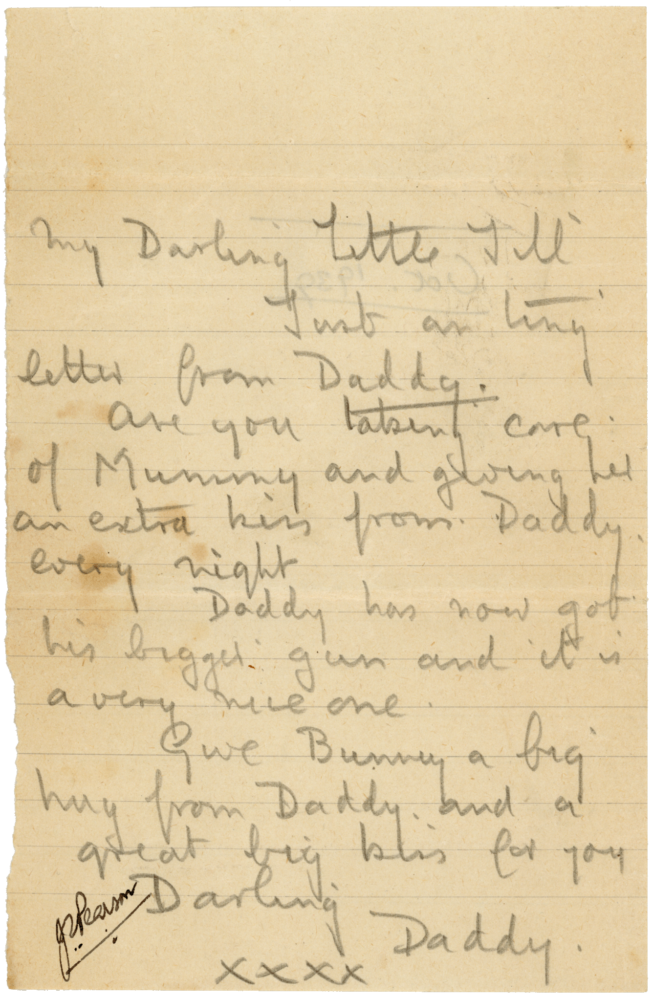 My Darling Little Jill
Just an tiny
letter from Daddy.
Are you taking care
of Mummy and giving her
an extra kiss from Daddy.
every night
Daddy has now got
his bigger gun and it is
a very nice one.
Give Bunny a big
hug from Daddy. and a
great big kiss for you
Darling
Daddy.
xxxx
JRPearson